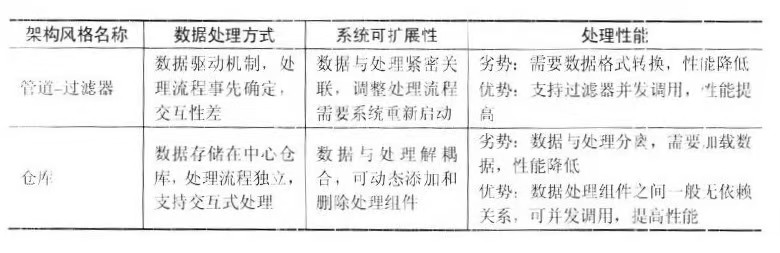 架构风格名称 数据处理方式 系统可扩展性 处理性能
管道-过滤器
数据驱动机制，处
理流程事先确定，
交互性差
数据与处理紧密关
联，调整处理流程
需要系统重新启动
劣势：需要数据格式转换，性能降低
优势：支持过滤器并发调用，性能提
高
仓库
数据存储在中心仓
库，处理流程独立，
支持交互式处理
数据与处理解耦
合，可动态添加和
删除处理组件
劣势：数据与处理分离，需要加载数
据，性能降低
优势：数据处理组件之间一般无依赖
关系，可并发调用，提高性能